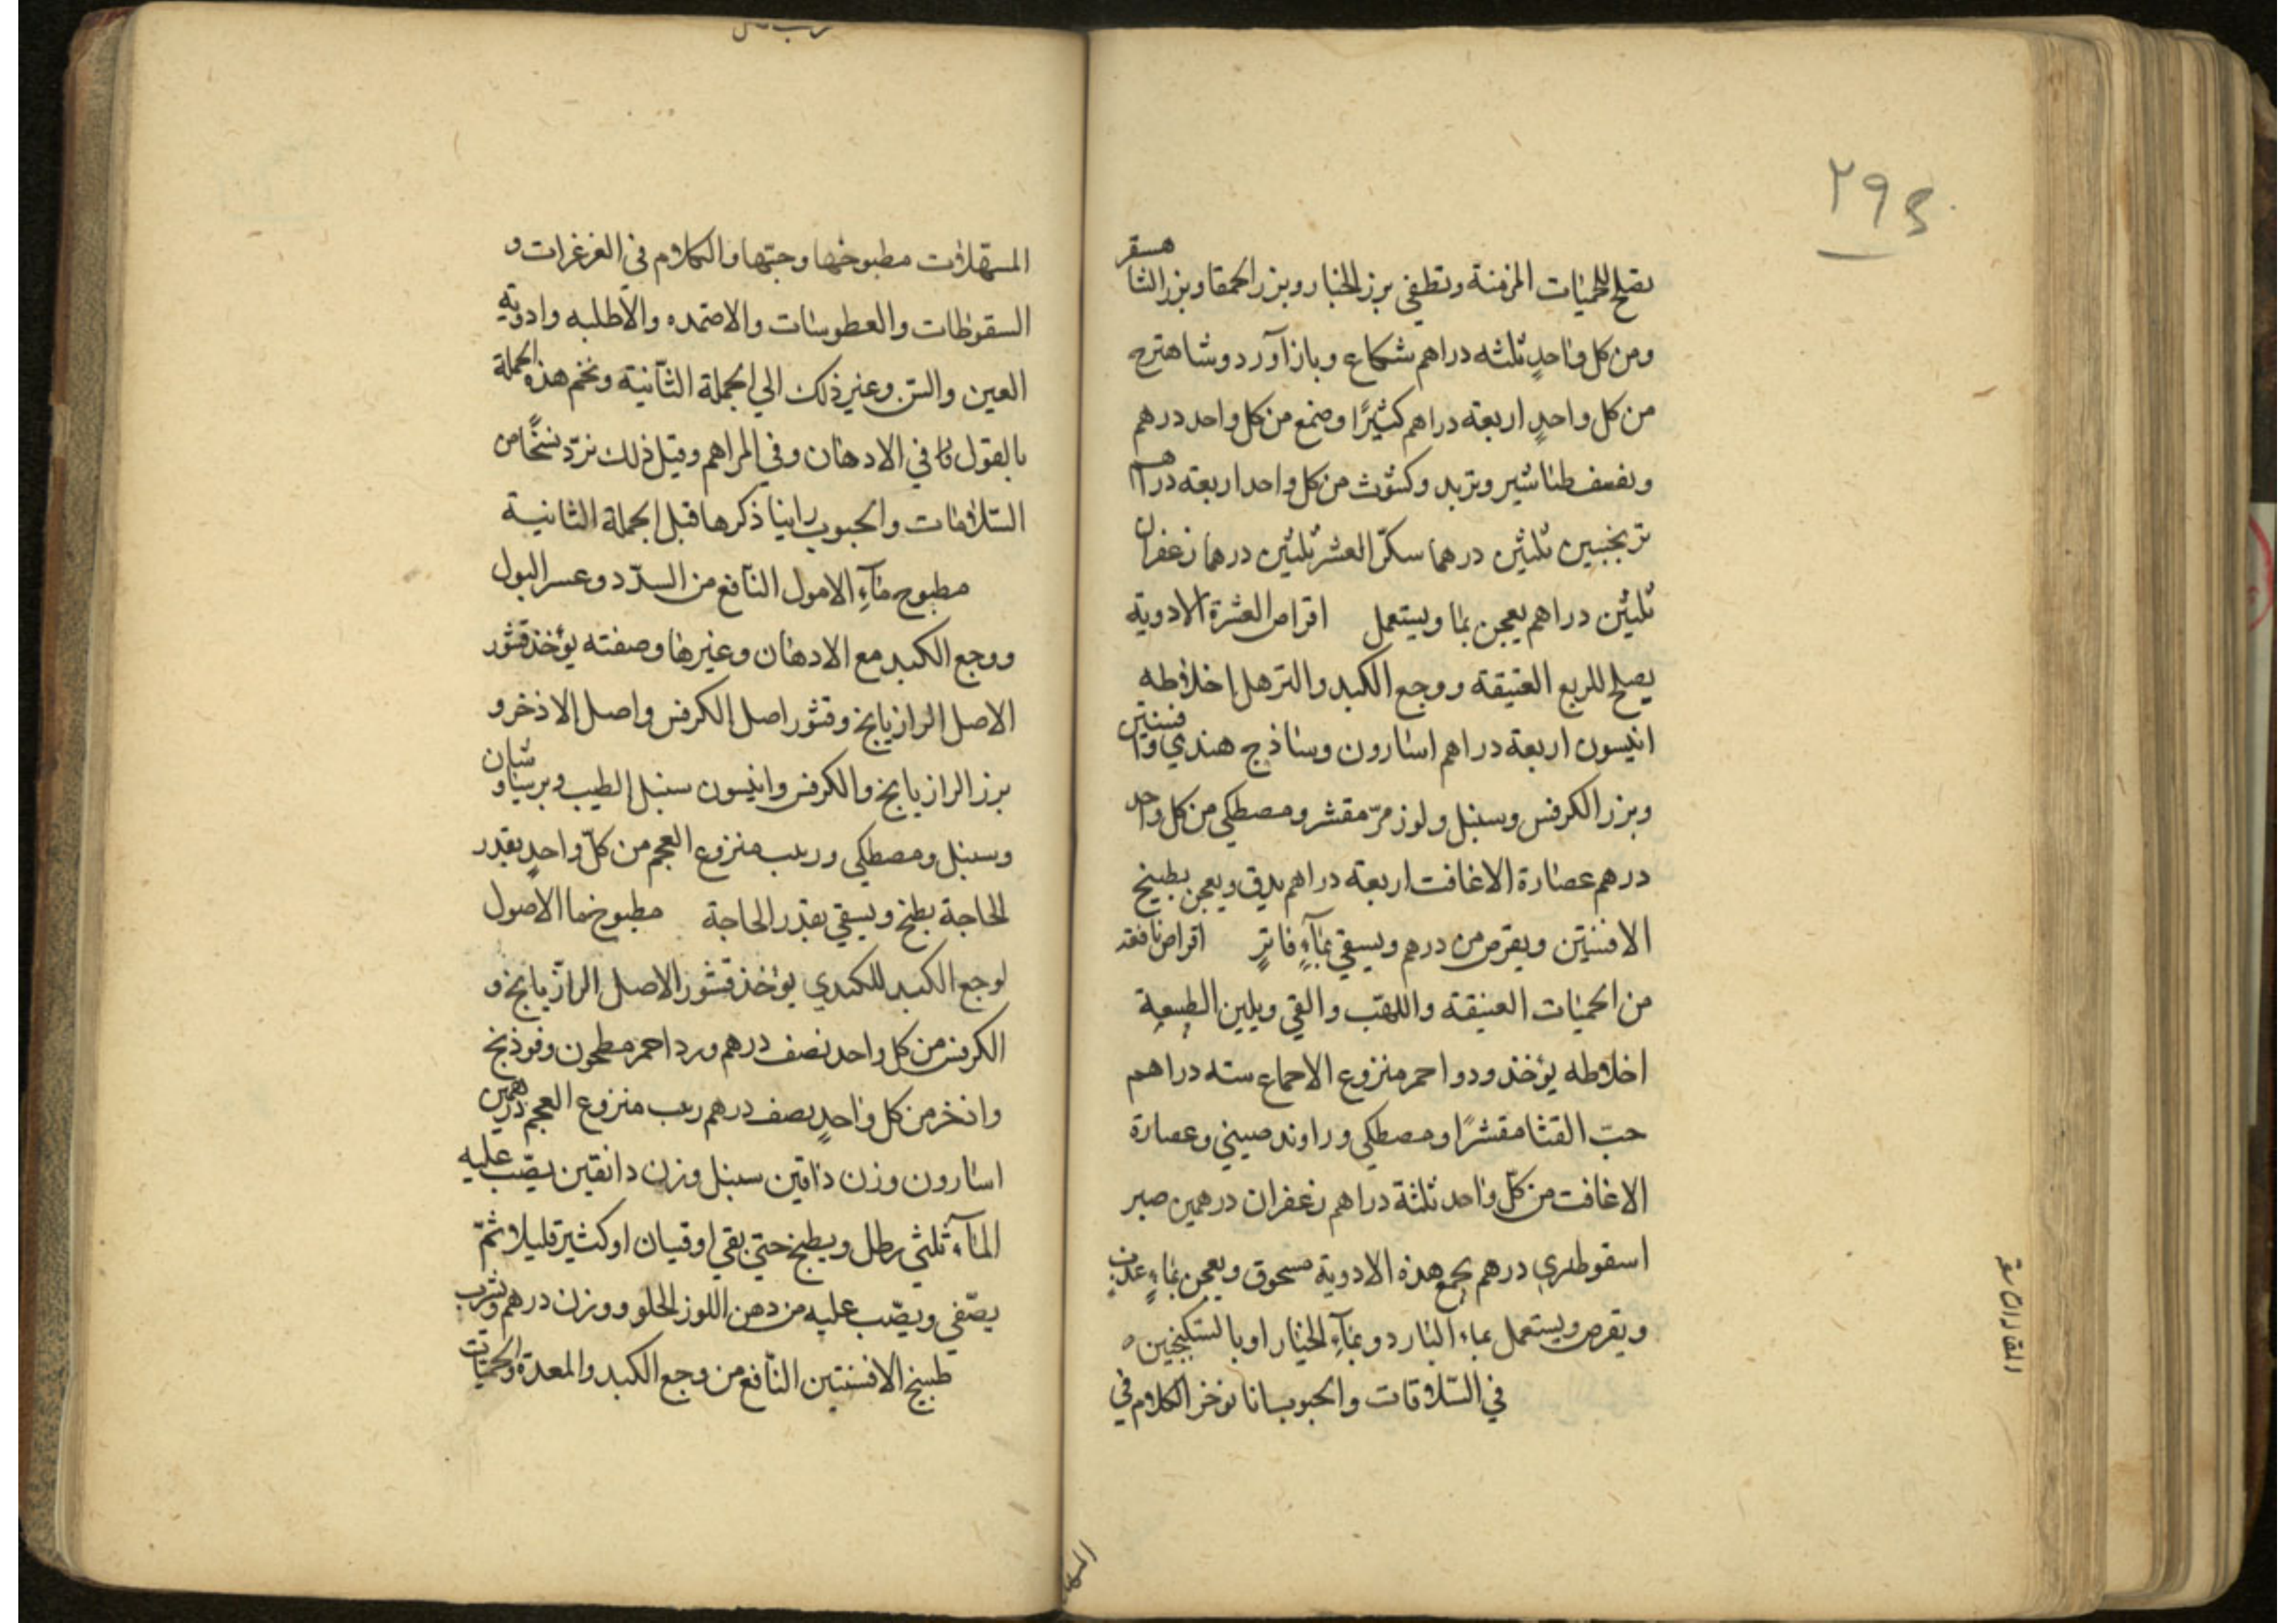 ٢٩٤
يصلح للحميات المزمنة وتطفي بزر الخيار وبزر الحمقا وبزر الشا هسفر
ومن كل واحدٍ ثلثه دراهم شكاع وبازآورد وشاهترج
من كل واحدٍ اربعة دراهم كثيرًا وصمغ من كل واحد درهم
ونصف طباشير وتربد وكشوث من كل واحد اربعة دراهم
ترنجبين ثلثين درهما سكر العشر ثلثين درهما زعفران
ثلثين دراهم يعجن بما ويستعمل اقراص العشرة الادوية
يصلح للربع العتيقة ووجع الكبد والترهل اخلاطه
انيسون اربعة دراهم اسارون وساذج هندي وافسنتين
وبزر الكرفس وسنبل ولوز مرّ مقشر ومصطكي من كل واحد
درهم عصارة الاغافت اربعة دراهم يدق ويعجن بطبيخ
الافسنتين ويقرص من درهم ويسقي بمآءٍ فاترٍ اقراص نافعه
من الحميات العتيقة واللهب والقي ويلين الطبيعة
اخلاطه يؤخذ ودوا حمر منزوع الاحماع سته دراهم
حبّ القثا مقشرًا ومصطكي وراوند صيني وعصارة
الاغافت من كلّ واحد ثلثة دراهم زعفران درهمين صبر
اسقوطري درهم يجمع هذه الادوية مسحوق ويعجن بماءٍ عذبٍ
ويقرص ويستعمل بماء البارد وبمآءِ الخيار او بالسكنجبين ه
في السّلاقات والحبوب انا نوخر الكلام في
المسهلات مطبوخها وحبّها والكلام في الغرغرات و
السقوطات والعطوسات والاضمده والاطليه وادوية
العين والسّن وغير ذلك الي الجملة الثآنية ونختم هذه الجملة
بالقول نا في الادهان وفي المراهم وقبل ذلك نردّ نسخًا من
السّلاقات والحبوب راينا ذكرها قبل الجملة الثانية
مطبوح مآءِ الامول النآفع من السدّد وعسر البول
ووجع الكبد مع الادهان وغيرها وصفته يؤخذ قشور
الاصل الرازيانج وقشور اصل الكرفس واصل الاذخر و
بزر الرازيانج والكرفس وانيسون سنبل الطيب وبرسياوشان
وسنبل ومصطكي وربب منزوع العجم من كلّ واحدٍ بقدر
الحاجة يطبخ ويسقي بقدر الحاجة مطبوخ ما الاصول
لوجع الكبد للكندي يؤخذ قشور الاصل الرازيانج و
الكرفس من كل واحد نصف درهم ورد احمر مطحون وفوذنج
واذخر من كل واحدٍ نصف درهم ربب منزوع العجم درهمين
اسارون وزن دانقين سنبل وزن دانقين يصّب عليه
المآء ثلثي رطل ويطبخ حتي يبقي اوقيان او كثير قليلا ثمّ
يصّفي ويصّب عليه من دهن اللوز الحلو ووزن درهم ويشرب
طبيخ الافسنتين النّافع من وجع الكبد والمعدة والحميّات